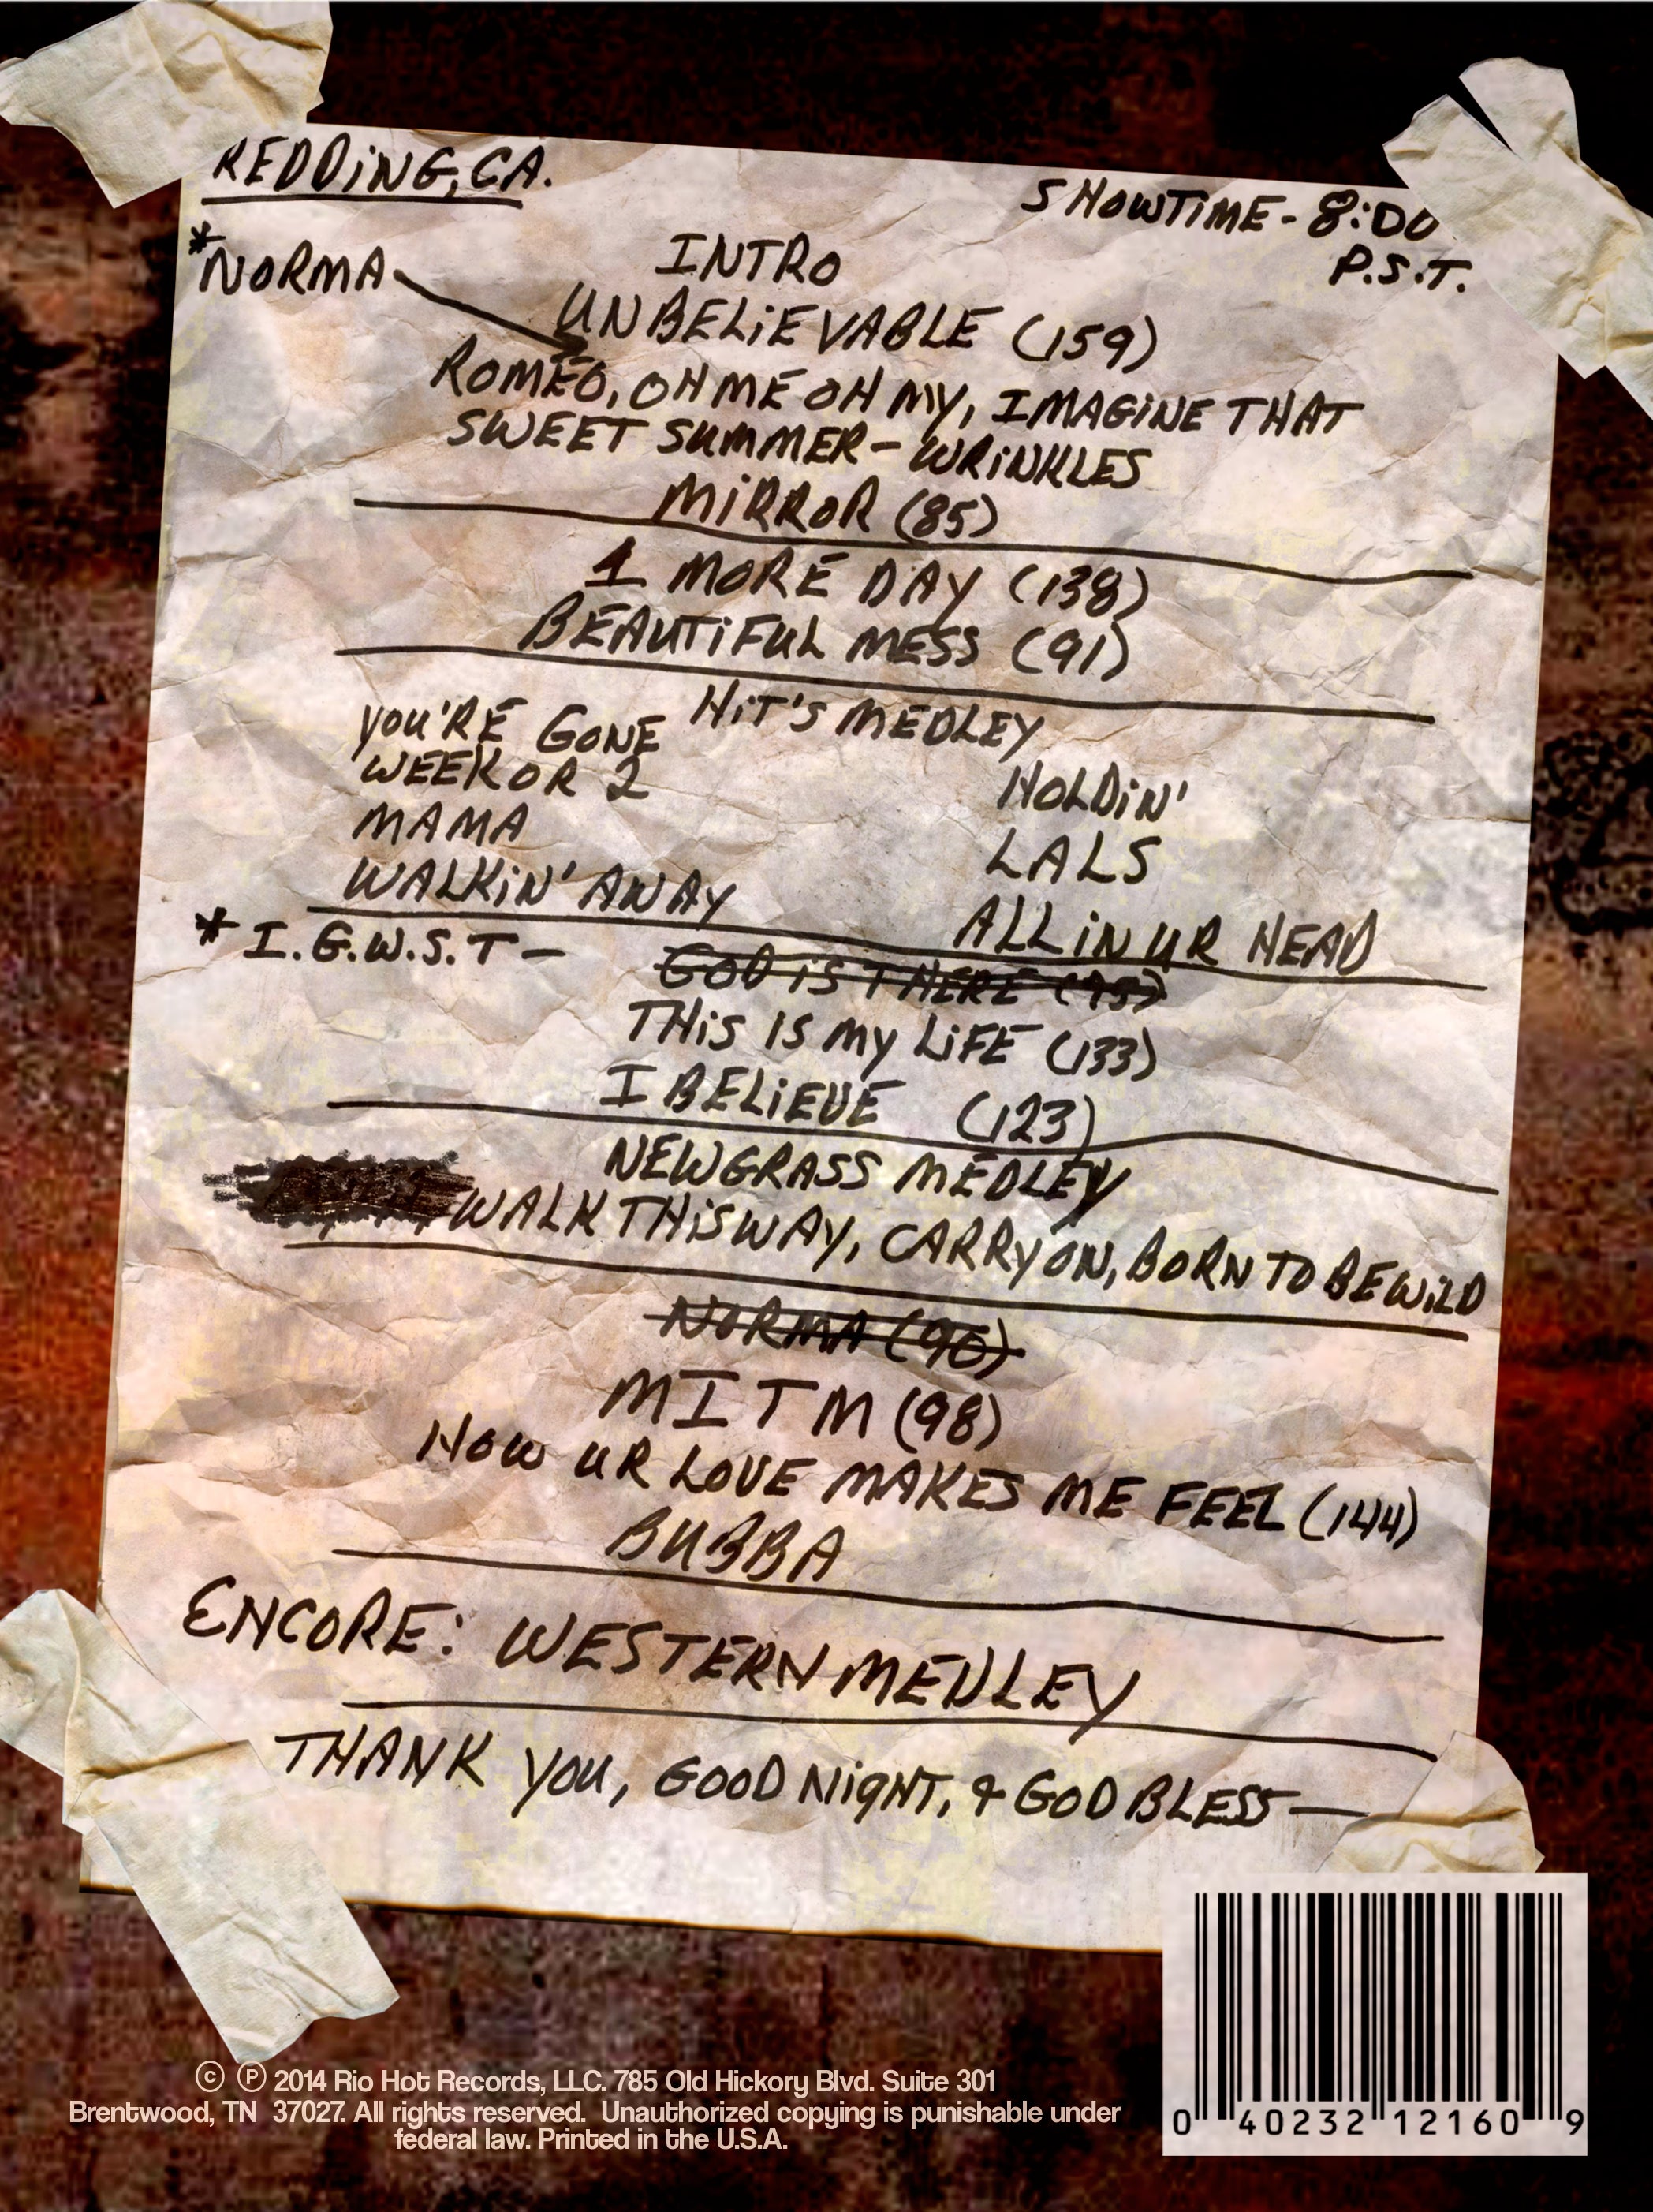 REDDING, CA.
SHOWTIME - 8:00
P.S.T.
*NORMA
INTRO
UNBELIEVABLE (159)
ROMEO, OH ME OH MY, IMAGINE THAT
SWEET SUMMER - WRINKLES
MIRROR (85)
1 MORE DAY (138)
BEAUTIFUL MESS (91)
HIT'S MEDLEY
YOU'RE GONE
WEEK OR 2
MAMA
WALKIN' AWAY
HOLDIN'
LALS
ALL IN UR HEAD
* I.G.W.S.T -
GOD IS THERE (95)
THIS IS MY LIFE (133)
I BELIEVE (123)
NEWGRASS MEDLEY
WALK THIS WAY, CARRY ON, BORN TO BE WILD
NORMA (90)
MITM (98)
HOW UR LOVE MAKES ME FEEL (144)
BUBBA
ENCORE: WESTERN MEDLEY
THANK YOU, GOOD NIGHT, & GOD BLESS —
© ℗ 2014 Rio Hot Records, LLC. 785 Old Hickory Blvd. Suite 301
Brentwood, TN 37027. All rights reserved. Unauthorized copying is punishable under
federal law. Printed in the U.S.A.
0 40232 12160 9